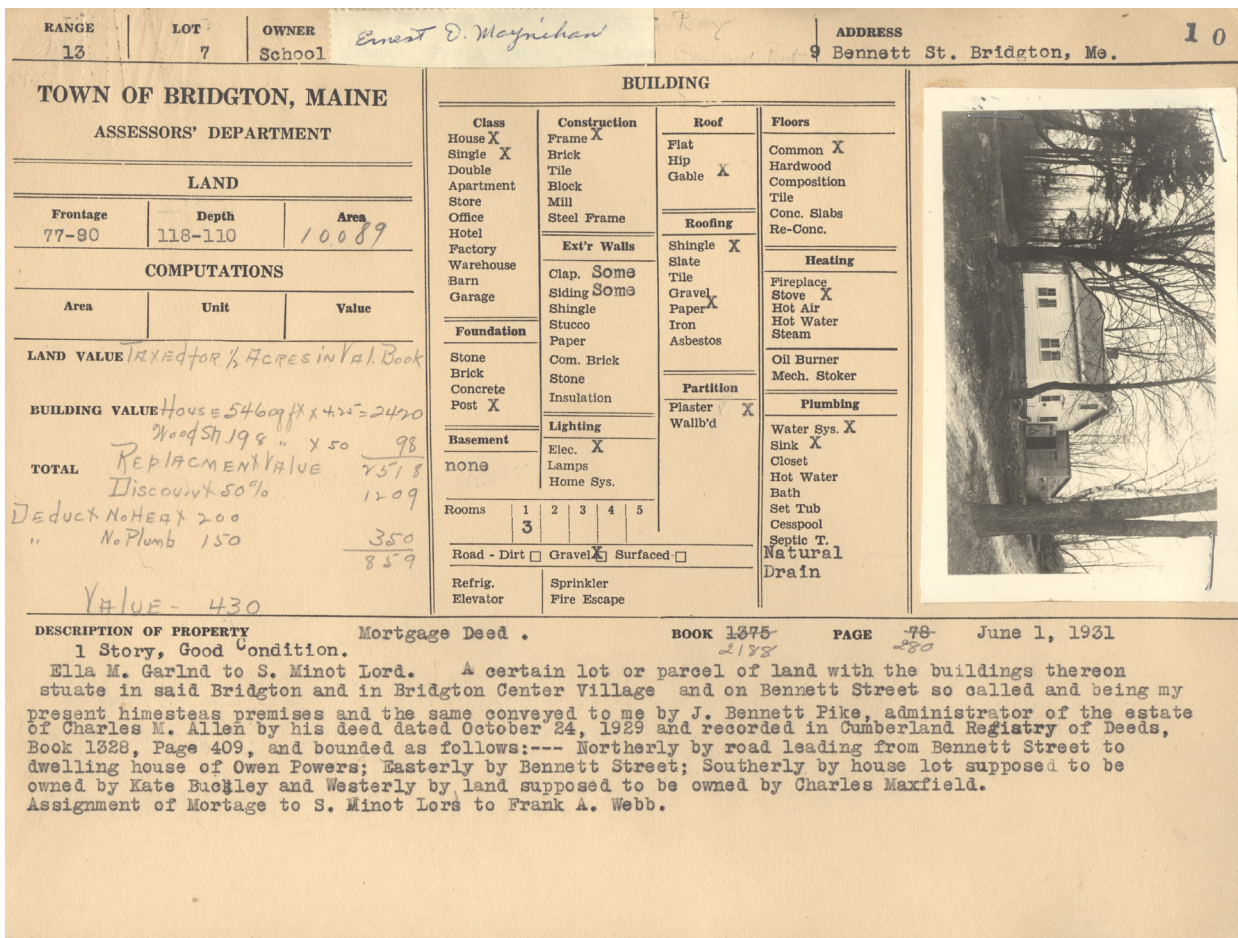 RANGE LOT OWNER ADDRESS 10
13 7 School Ernest D. Moynihan Roy 9 Bennett St. Bridgton, Me.
TOWN OF BRIDGTON, MAINE
ASSESSORS' DEPARTMENT
LAND
Frontage Depth Area
77-80 118-110 10089
COMPUTATIONS
Area Unit Value
LAND VALUE Taxed for 1/2 Acres in Val. Book
BUILDING VALUE House 546 sq ft x 4.25 = 2420
Wood Sh. 198 " x 50 98
TOTAL Replacment Value 2518
Discount 50% 1209
Deduct No Heat 200
" No Plumb 150 350
859
Value - 430
BUILDING
Class
House X
Single X
Double
Apartment
Store
Office
Hotel
Factory
Warehouse
Barn
Garage
Foundation
Stone
Brick
Concrete
Post X
Basement
none
Construction
Frame X
Brick
Tile
Block
Mill
Steel Frame
Ext'r Walls
Clap. Some
Siding Some
Shingle
Stucco
Paper
Com. Brick
Stone
Insulation
Lighting
Elec. X
Lamps
Home Sys.
Roof
Flat
Hip
Gable X
Roofing
Shingle X
Slate
Tile
Gravel
Paper X
Iron
Asbestos
Partition
Plaster X
Wallb'd
Floors
Common X
Hardwood
Composition
Tile
Conc. Slabs
Re-Conc.
Heating
Fireplace
Stove X
Hot Air
Hot Water
Steam
Oil Burner
Mech. Stoker
Plumbing
Water Sys. X
Sink X
Closet
Hot Water
Bath
Set Tub
Cesspool
Septic T.
Natural
Drain
Rooms 1 2 3 4 5
3
Road - Dirt Gravel X Surfaced
Refrig. Sprinkler
Elevator Fire Escape
DESCRIPTION OF PROPERTY Mortgage Deed . BOOK 1375 PAGE 78 June 1, 1931
1 Story, Good Condition. 2188 280
Ella M. Garlnd to S. Minot Lord. A certain lot or parcel of land with the buildings thereon
stuate in said Bridgton and in Bridgton Center Village and on Bennett Street so called and being my
present himesteas premises and the same conveyed to me by J. Bennett Pike, administrator of the estate
of Charles M. Allen by his deed dated October 24, 1929 and recorded in Cumberland Registry of Deeds,
Book 1328, Page 409, and bounded as follows:--- Northerly by road leading from Bennett Street to
dwelling house of Owen Powers; Easterly by Bennett Street; Southerly by house lot supposed to be
owned by Kate Buckley and Westerly by land supposed to be owned by Charles Maxfield.
Assignment of Mortage to S. Minot Lors to Frank A. Webb.